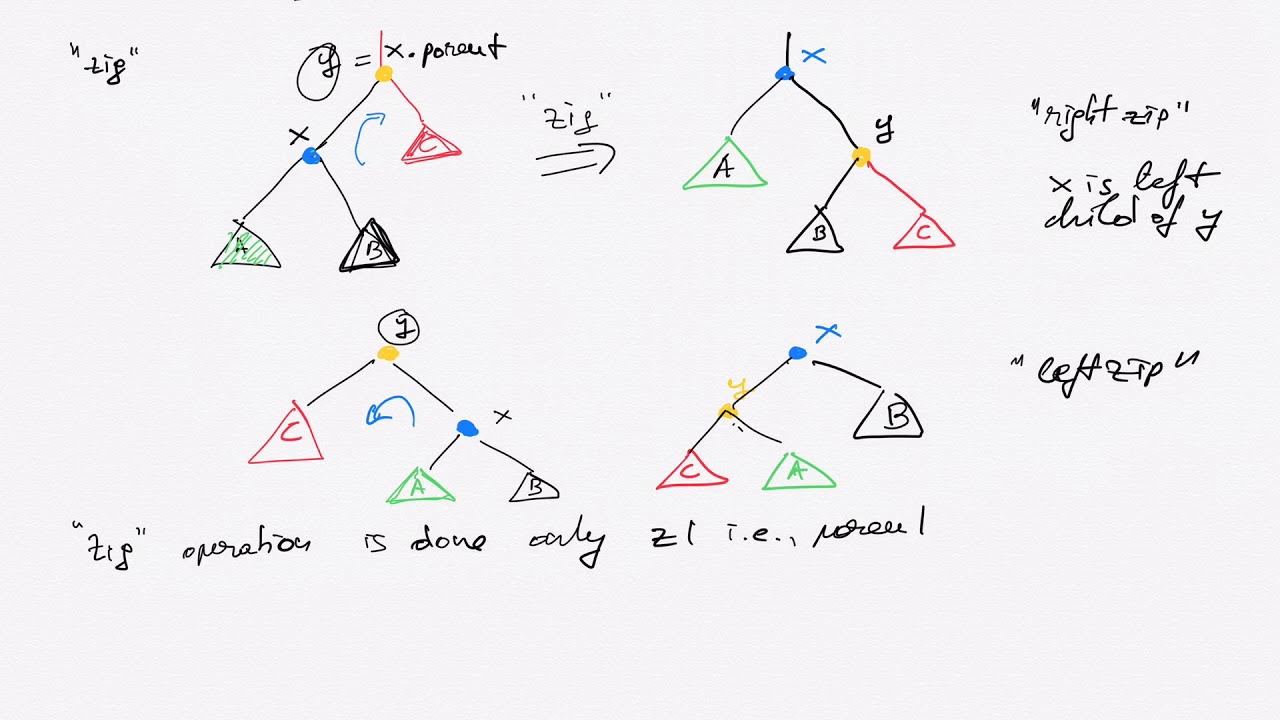 "zig"
y = x.parent
x
C
A
B
"zig"
x
A
y
B
C
"right zip"
x is left
child of y
y
C
x
A
B
x
y
B
C
A
"left zip"
"zig" operation is done only i.e., parent